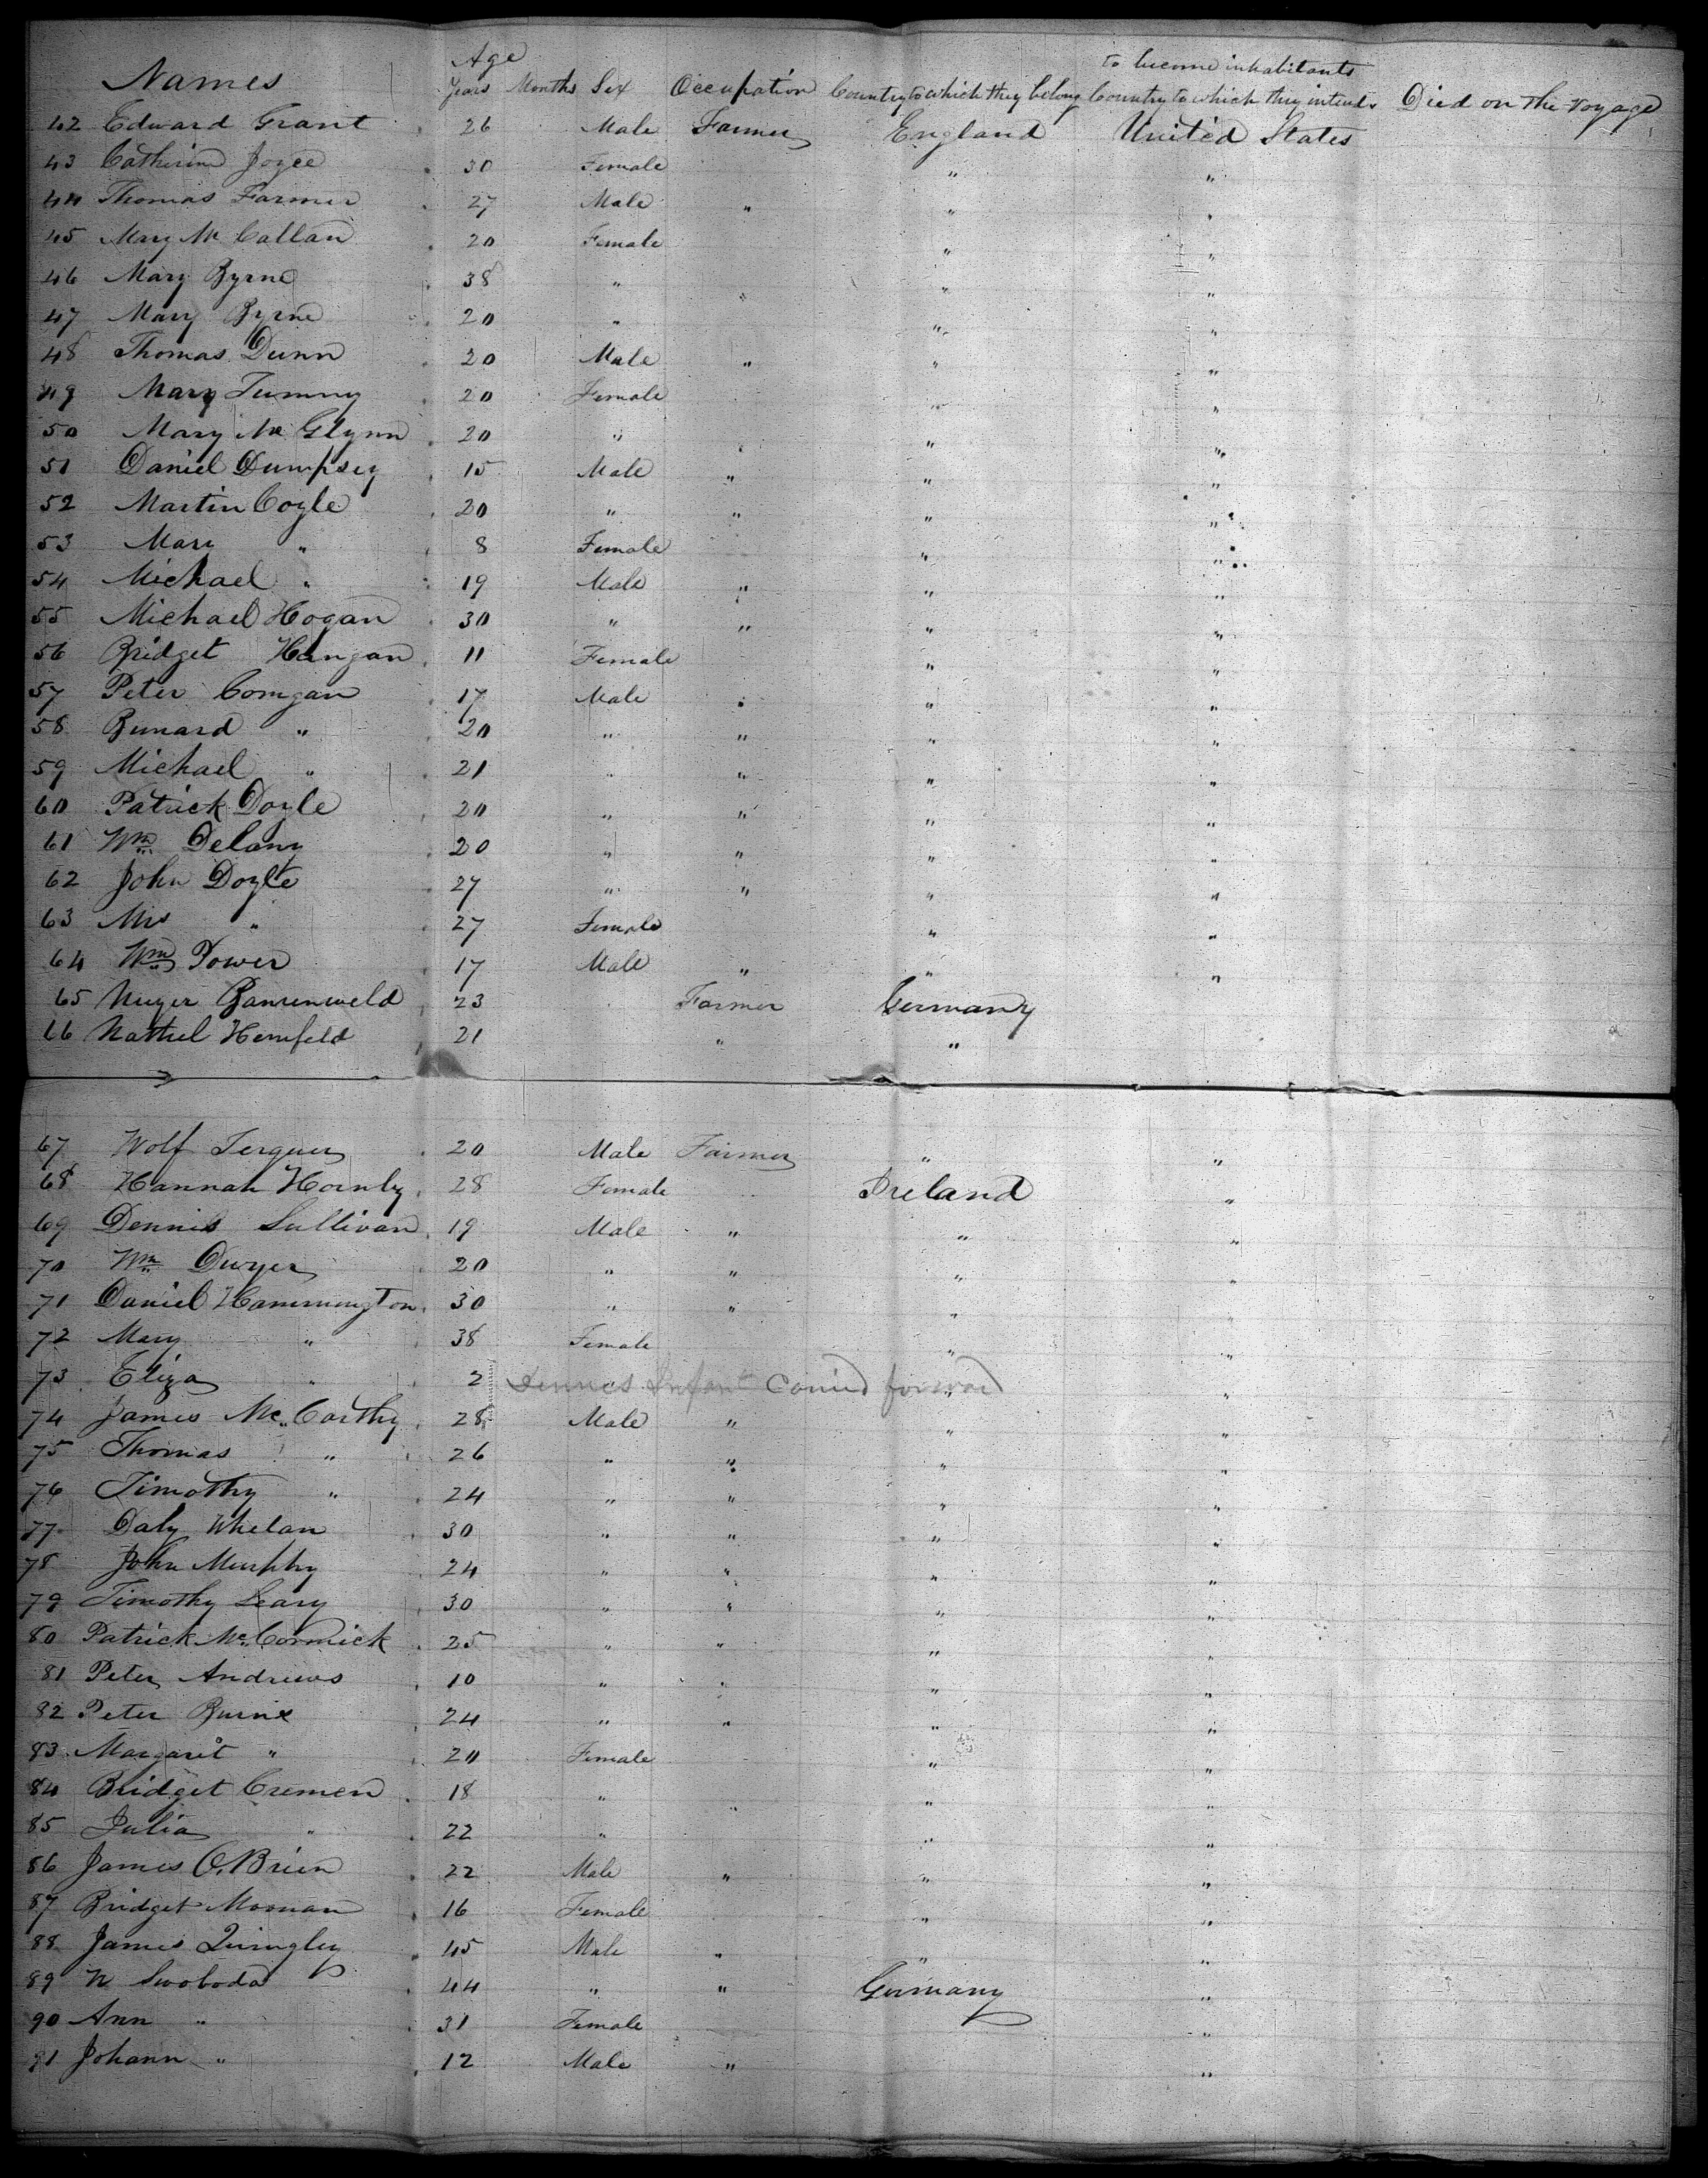 Names Age Years Months Sex Occupation Country to which they belong Country to which they intend to become inhabitants Died on the Voyage
42 Edward Grant 26 Male Farmer England United States
43 Catherine Joyce 30 Female " "
44 Thomas Farmer 27 Male " " "
45 Mary Mc Callan 20 Female " "
46 Mary Byrne 38 " " " "
47 Mary Byrne 20 " " "
48 Thomas Dunn 20 Male " " "
49 Mary Tummy 20 Female " "
50 Mary Mc Glynn 20 " " "
51 Daniel Dumpsey 15 Male " " "
52 Martin Coyle 20 " " " "
53 Mary " 8 Female " "
54 Michael " 19 Male " " "
55 Michael Hogan 30 " " " "
56 Bridget Hangan 11 Female " "
57 Peter Comgan 17 Male " " "
58 Bernard " 20 " " " "
59 Michael " 21 " " " "
60 Patrick Doyle 20 " " " "
61 Wm Delany 20 " " " "
62 John Doyle 27 " " " "
63 Mrs " 27 Female " "
64 Wm Power 17 Male " " "
65 23 Farmer Germany
66 21 " "
67 Wolf 20 Male Farmer " "
68 Hannah Hornby 28 Female Ireland "
69 Dennis Sullivan 19 Male " " "
70 Wm Dwyer 20 " " " "
71 Daniel Hammington 30 " " " "
72 Mary " 38 Female " "
73 Eliza " 2 Dennis Infant Carried forward " "
74 James Mc Carthy 28 Male " " "
75 Thomas " 26 " " " "
76 Timothy " 24 " " " "
77 Daly Whelan 30 " " " "
78 John Murphy 24 " " " "
79 Timothy Leary 30 " " " "
80 Patrick Mc Cormick 25 " " " "
81 Peter Andrews 10 " " " "
82 Peter Burns 24 " " " "
83 Margaret " 20 Female " "
84 Bridget Cremen 18 " " " "
85 Julia " 22 " " "
86 James O'Brien 22 Male " " "
87 Bridget Mornan 16 Female " "
88 James Quingley 45 Male " " "
89 N Swoboda 44 " " Germany "
90 Ann " 31 Female "
91 Johann " 12 Male " "